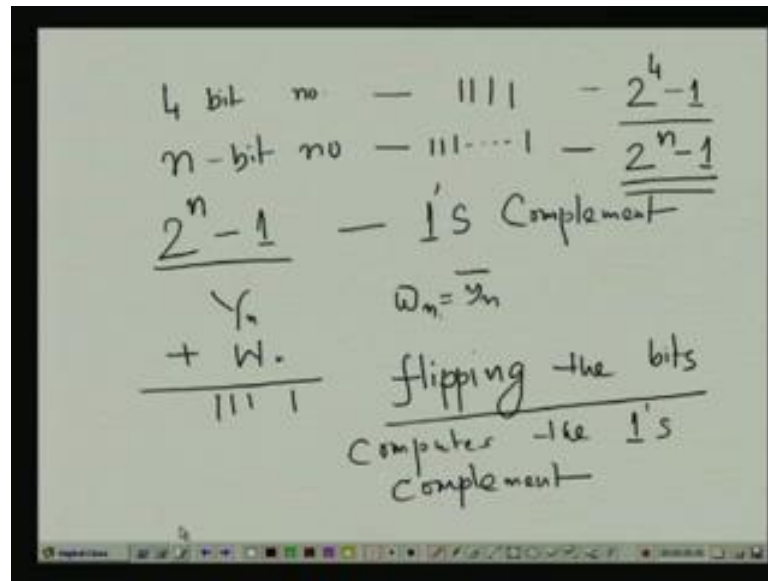 4 bit no — 1111 - 2^4-1
n-bit no — 111....1 — 2^n-1
2^n - 1 — 1's Complement
Yn Wn = \overline{yn}
+ W.
1111 flipping the bits
Computes the 1's
Complement